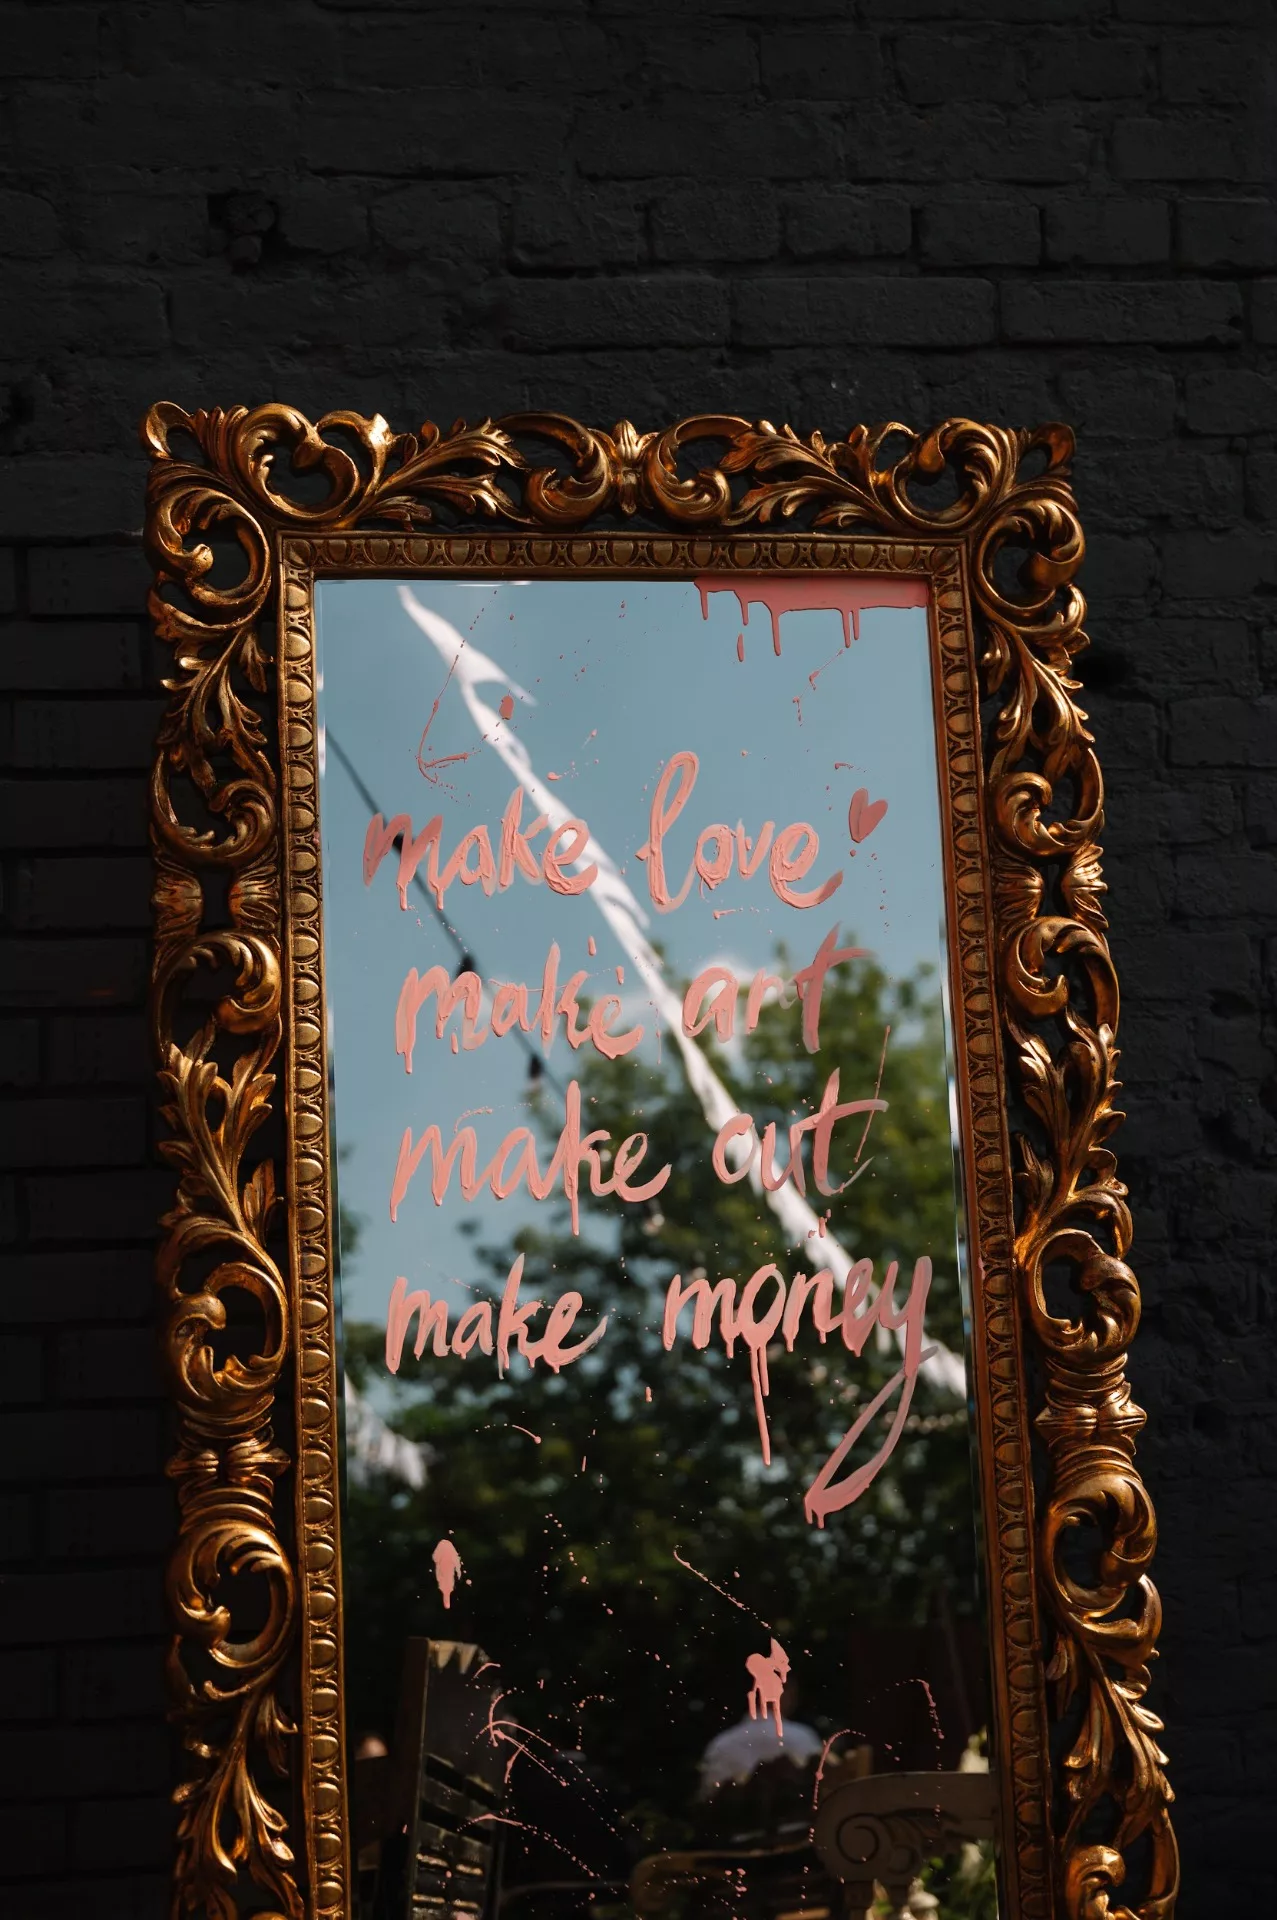 make love
make art
make out
make money